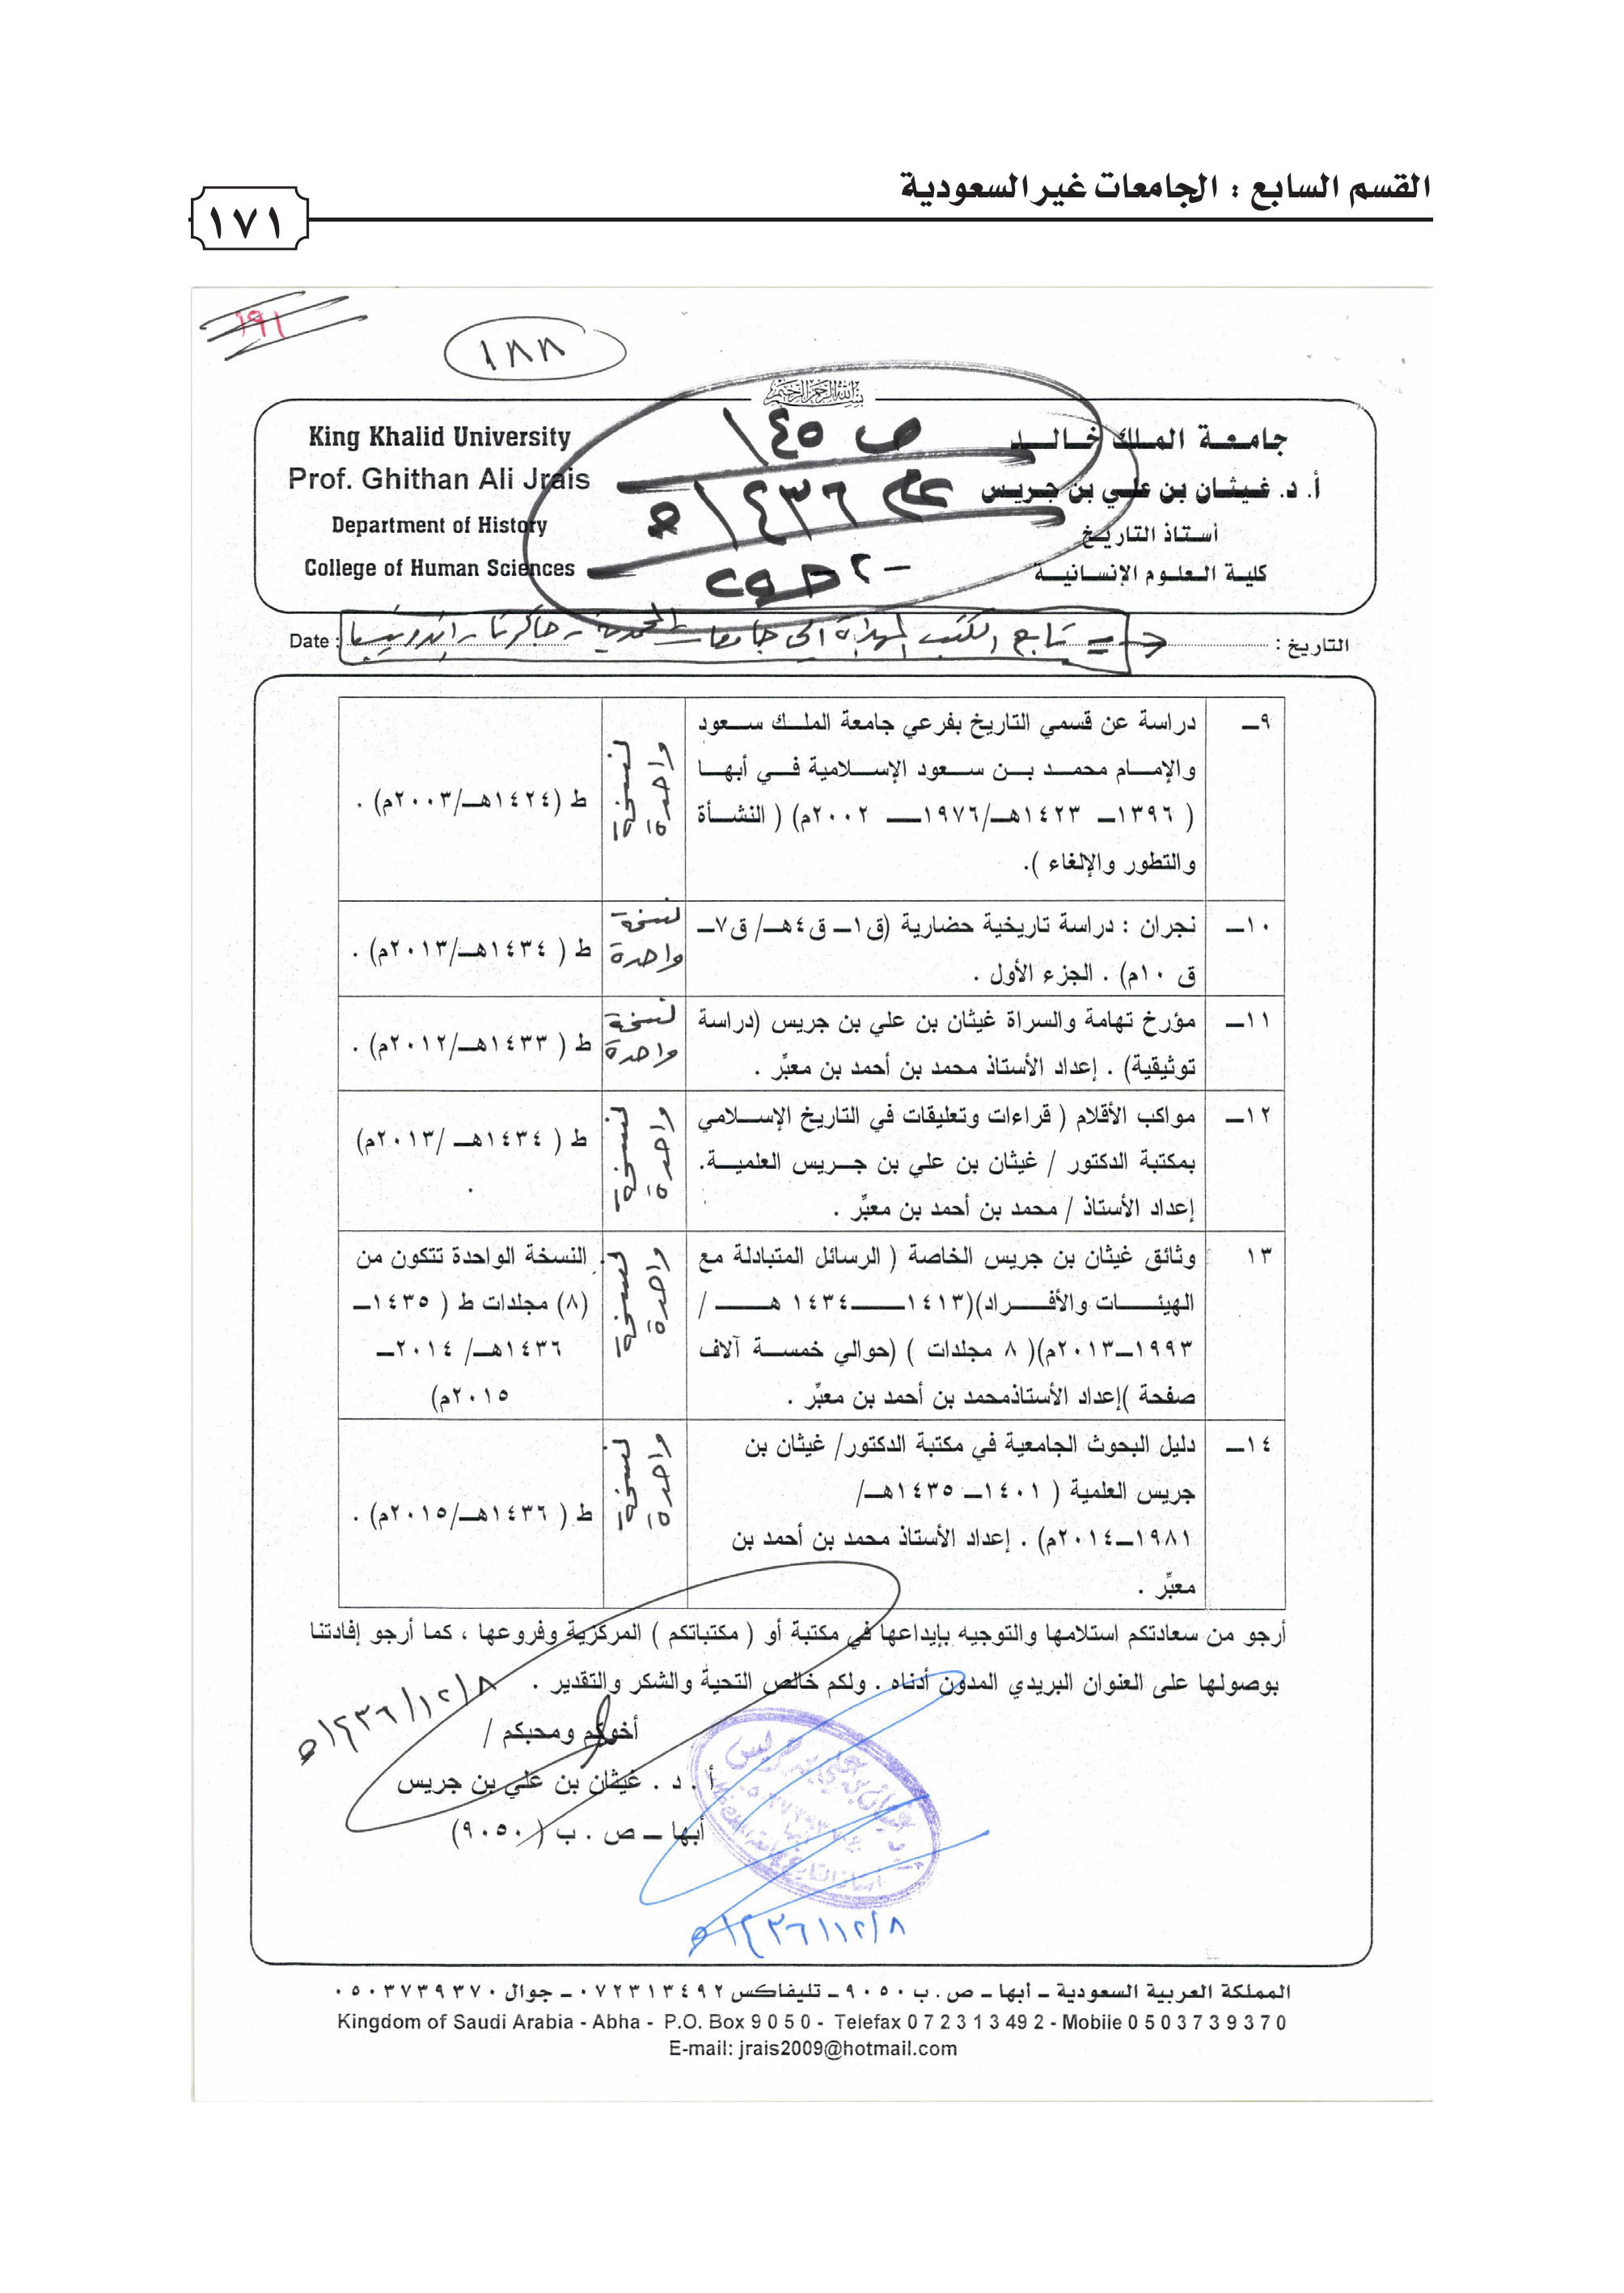 القسم السابع : الجامعات غير السعودية
١٧١
١٩١
١٨٨
جامعة الملك خالد
أ. د. غيثان بن علي بن جريس
أستاذ التاريخ
كلية العلوم الإنسانية
King Khalid University
Prof. Ghithan Ali Jrais
Department of History
College of Human Sciences
ص ١٤٥
عام ١٤٣٦هـ
-٢-
التاريخ :
Date :
= تابع الكتب المهداة الى جامعات المحمدية - جاكرتا - إندونيسيا
٩ــ
دراسة عن قسمي التاريخ بفرعي جامعة الملك سعود
والإمام محمد بن سعود الإسلامية في أبها
( ١٣٩٦ــ ١٤٢٣هـ/١٩٧٦ــ ٢٠٠٢م) ( النشأة
والتطور والإلغاء ).
نسخة
واحدة
ط (١٤٢٤هـ/٢٠٠٣م) .
١٠ــ
نجران : دراسة تاريخية حضارية (ق١ــ ق٤هـ/ ق٧ــ
ق ١٠م) . الجزء الأول .
نسخة
واحدة
ط ( ١٤٣٤هـ/٢٠١٣م) .
١١ــ
مؤرخ تهامة والسراة غيثان بن علي بن جريس (دراسة
توثيقية) . إعداد الأستاذ محمد بن أحمد بن معبِّر .
نسخة
واحدة
ط ( ١٤٣٣هـ/٢٠١٢م) .
١٢ــ
مواكب الأقلام ( قراءات وتعليقات في التاريخ الإسلامي
بمكتبة الدكتور / غيثان بن علي بن جريس العلمية.
إعداد الأستاذ / محمد بن أحمد بن معبِّر .
نسخة
واحدة
ط ( ١٤٣٤هـ /٢٠١٣م)
.
١٣
وثائق غيثان بن جريس الخاصة ( الرسائل المتبادلة مع
الهيئات والأفراد)(١٤١٣ــ١٤٣٤ هـ /
١٩٩٣ــ٢٠١٣م)( ٨ مجلدات ) (حوالي خمسة آلاف
صفحة )إعداد الأستاذمحمد بن أحمد بن معبِّر .
نسخة
واحدة
النسخة الواحدة تتكون من
(٨) مجلدات ط ( ١٤٣٥ــ
١٤٣٦هـ/ ٢٠١٤ــ
٢٠١٥م)
١٤ــ
دليل البحوث الجامعية في مكتبة الدكتور/ غيثان بن
جريس العلمية ( ١٤٠١ــ ١٤٣٥هـ/
١٩٨١ــ٢٠١٤م) . إعداد الأستاذ محمد بن أحمد بن
معبِّر .
نسخة
واحدة
ط ( ١٤٣٦هـ/٢٠١٥م) .
أرجو من سعادتكم استلامها والتوجيه بإيداعها في مكتبة أو ( مكتباتكم ) المركزية وفروعها ، كما أرجو إفادتنا
بوصولها على العنوان البريدي المدون أدناه . ولكم خالص التحية والشكر والتقدير .
أخوكم ومحبكم /
١٤٣٦/١٢/٨هـ
أ . د . غيثان بن علي بن جريس
أبها ــ ص . ب ( ٩٠٥٠)
١٤٣٦/١٢/٨هـ
المملكة العربية السعودية ــ أبها ــ ص . ب ٩٠٥٠ ــ تليفاكس ٠٧٢٣١٣٤٩٢ ــ جوال ٠٥٠٣٧٣٩٣٧٠
Kingdom of Saudi Arabia - Abha - P.O. Box 9 0 5 0 - Telefax 0 7 2 3 1 3 4 9 2 - Mobile 0 5 0 3 7 3 9 3 7 0
E-mail: jrais2009@hotmail.com